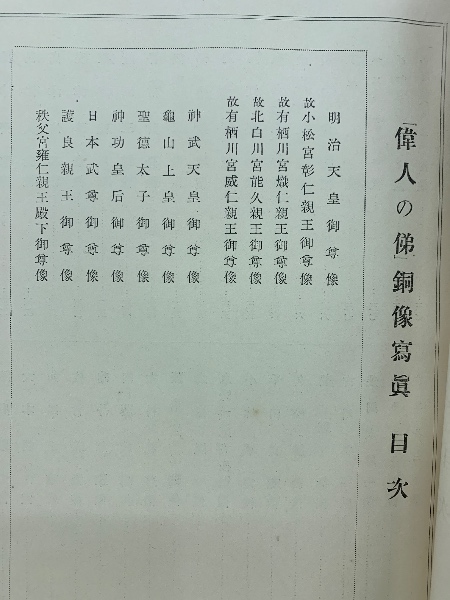 「偉人の俤」銅像寫眞 目次
明治天皇御尊像
故小松宮彰仁親王御尊像
故有栖川宮熾仁親王御尊像
故北白川宮能久親王御尊像
故有栖川宮威仁親王御尊像
神武天皇御尊像
龜山上皇御尊像
聖德太子御尊像
神功皇后御尊像
日本武尊御尊像
護良親王御尊像
秩父宮雍仁親王殿下御尊像